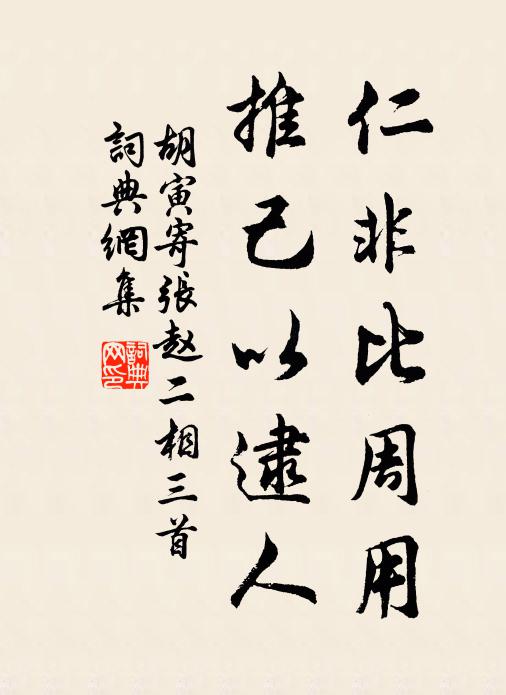 仁非比周用
推己以逮人
胡寅寄張赵二相三首
詞典網集
詞典網印